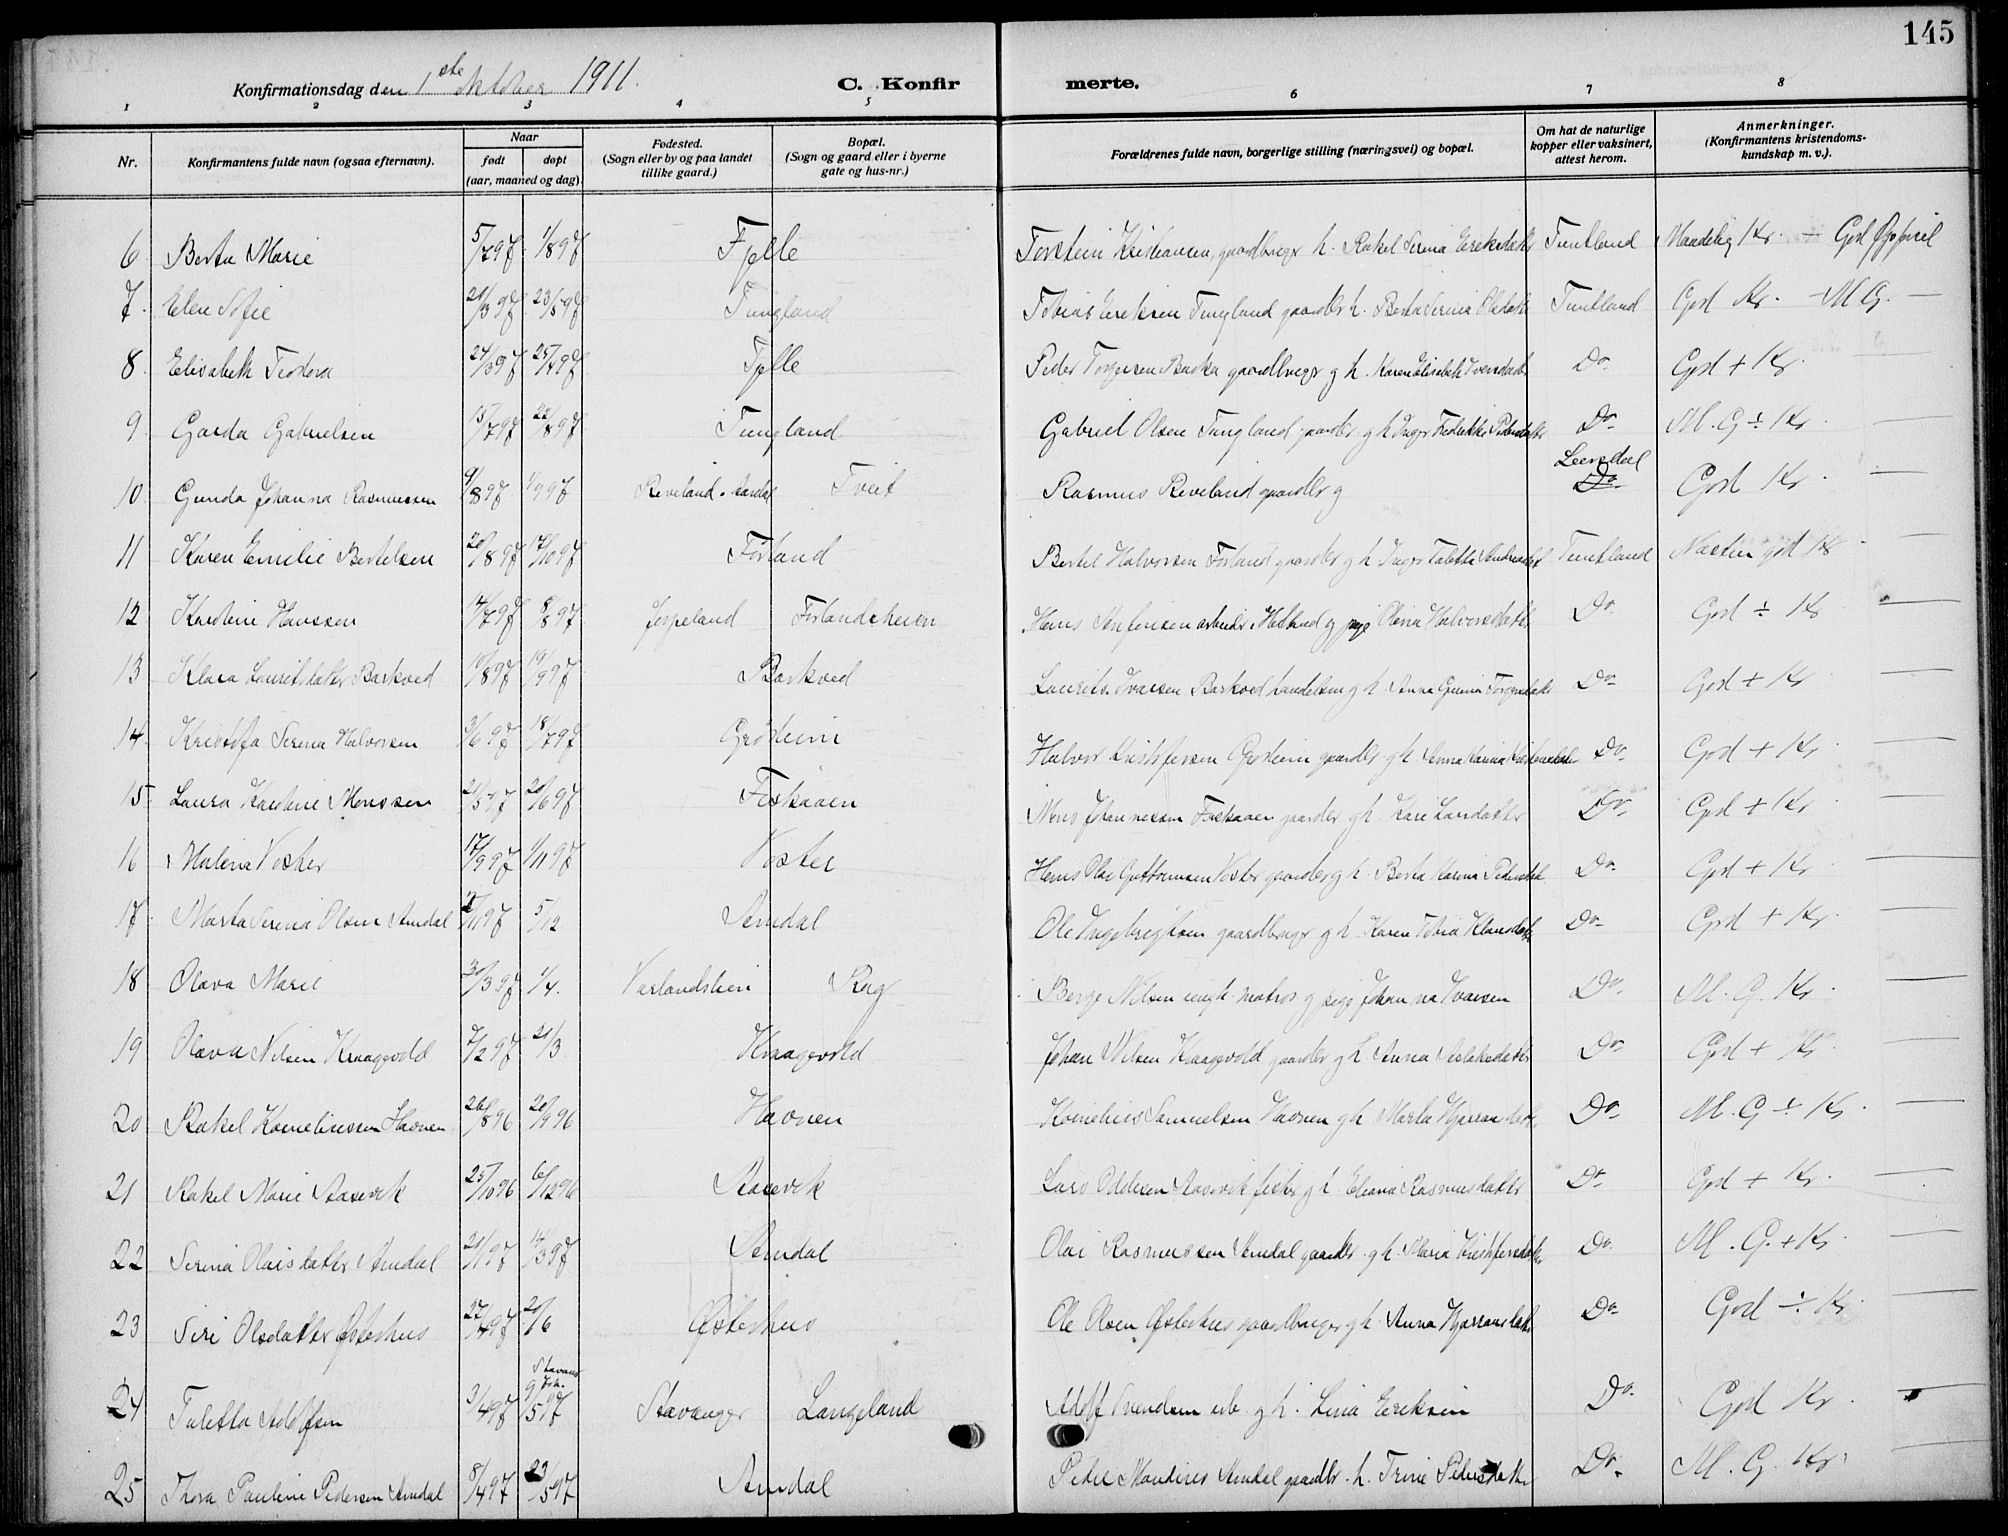 145
Konfirmationsdag den 1ste Oktober 1911. C. Konfir merte.
1 2 3 4 5 6 7 8
Nr. Konfirmantens fulde navn (ogsaa efternavn). Naar født døpt (aar, maaned og dag). Fødested. (Sogn eller by og paa landet tillike gaard.) Bopæl. (Sogn og gaard eller i byerne gate og hus-nr.) Forældrenes fulde navn, borgerlige stilling (næringsvei) og bopæl. Om hat de naturlige kopper eller vaksinert, attest herom. Anmerkninger. (Konfirmantens kristendoms-kundskap m. v.).
6 Berta Marie 5/7 97 1/8 97 Fjelle Torstein Kristiansen, gaardbruger h. Rakel Serina Eriksdatter Tuntland Maadelig Kr. — God Opførsel
7 Elen Sofie 21/3 97 23/5 97 Tungland Tobias Eriksen Tungland gaardbr h. Berta Serina Olsdatter Tuntland God Kr. — M G. —
8 Elisabeth Teodora 24/3 97 25/4 97 Fjelle Peder Torgersen gaardbruger g h. Karen Elisabeth Iversdatter Do God + Kr. —
9 Garda Gabrielsen 15/7 97 22/8 97 Tungland Gabriel Olsen Tungland gaardbr. g h Inger Fredrikke Pedersdatter Do M. G ÷ Kr —
10 Gunda Johanna Rasmussen 9/8 97 1/9 97 Reveland Tveit Rasmus Reveland gaardbr g Do God Kr. —
11 Karen Emilie Bertelsen 20/8 97 17/10 97 Forland Bertel Halvorsen Forland gaardbr g h Inger Taletta Tuntland Næsten god Kr. —
12 Karoline Hanssen 14/7 97 8/8 97 Jørpeland Forlandsheien Hans g pige Olena Halvorsdatter Do God ÷ Kr —
13 Klara Lauritsdatter Barkved 10/8 97 19/9 97 Barkved Laurits Ivarsen Barkved handelsm g h Anna Do God + Kr —
14 Kristofa Serina Halvorsen 3/6 97 18/7 97 Grøtheim Halvor Kristofersen Grøtheim gaardbr. g h Anna Karina Do God + Kr —
15 Laura Karoline Monssen 21/5 97 20/6 97 Fiskaaen Mons Johannesen Fiskaaen gaardbr g h. Kari Larsdatter Do God + Kr —
16 Malena Voster 17/9 97 1/11 97 Voster Hans Olai Guttormsen Voster gaardbr g h. Berta Karina Pedersdat Do God + Kr —
17 Marta Serina Olsen Amdal 11 97 5/12 Amdal Ole Ingebrigtsen gaardbruger g h. Karen Tobia Klausdatter Do God + Kr —
18 Olava Marie 30/3 97 1/4. Vaslandslien Krag Berge Nilsen ungk. matros g pige Johanna Ivarsen Do M. G. Kr —
19 Olava Nilsen Kraagevold 7/2 97 21/3 Kraagevold Johan Nilsen Kraagevold gaardbr g h Anna Aslaksdatter Do God + Kr —
20 Rakel Korneliussen Havnen 26/8 96 20/9 96 Havnen Kornelius Samuelsen Havnen g h Marta Do M. G ÷ Kr —
21 Rakel Marie Aasevik 25/10 96 6/12 96 Aasevik Lars Oddesen Aasevik fisker g h. Eliana Rasmusdatter Do God + Kr —
22 Serina Olaisdatter Amdal 21/1 97 14/3 97 Amdal Olai Rasmussen Amdal gaardbr. g h. Maria Kristofersdatter Do M. G. + Kr —
23 Siri Olsdatter Østerhus 27/4 97 20/6 Østerhus Ole Olsen Østerhus gaardbruger g h. Anna Do God ÷ Kr —
24 Taletta Adolfsen 3/4 97 9/5 97 Stavanger Langeland Adolf Svendsen arb g h. Lina Eriksen Do God Kr. —
25 Thora Pauline Pedersen Amdal 8/4 97 23/5 97 Amdal Peder Amdal gaardbr. h. Trine Pedersdatter Do M. G. Kr. —